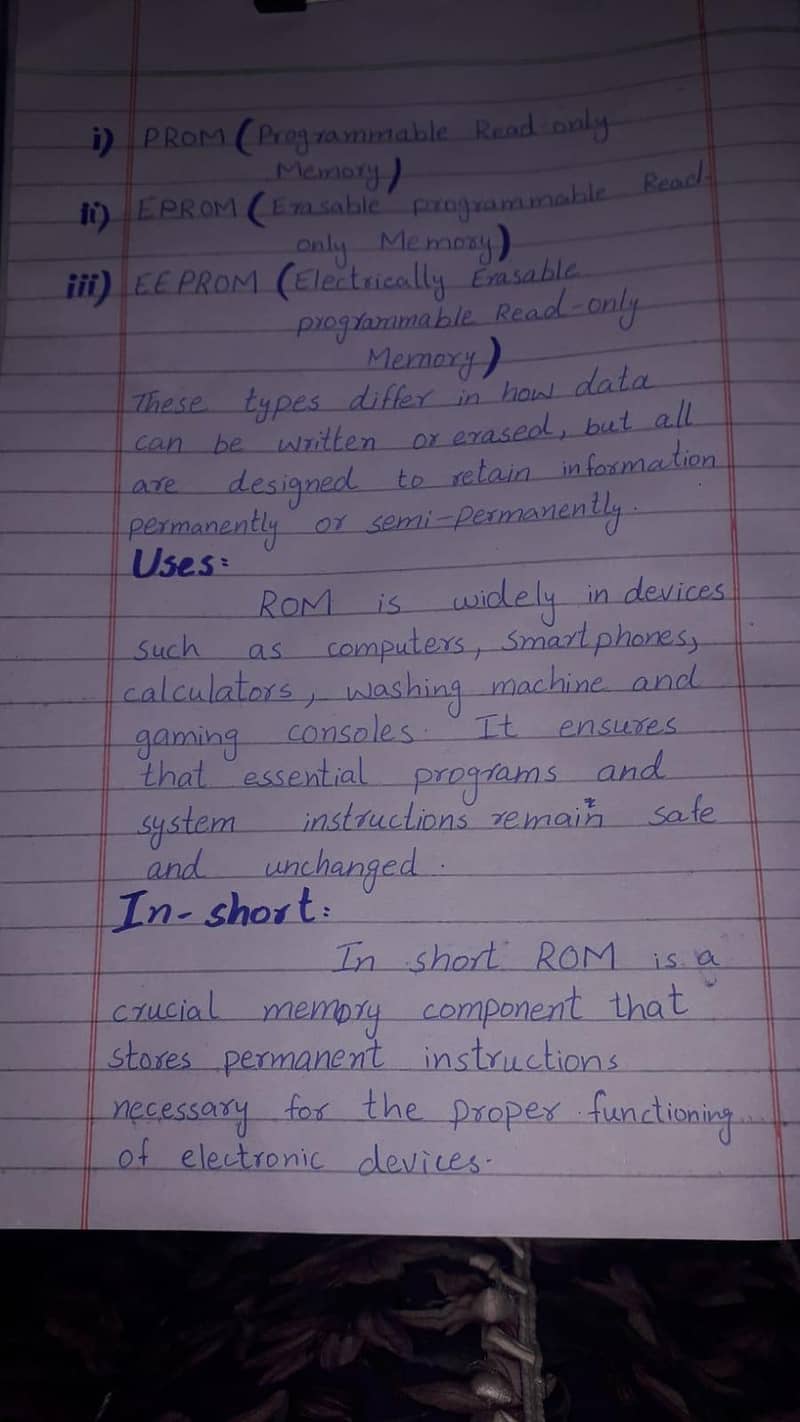 i) PROM (Programmable Read-only
Memory)
ii) EPROM (Erasable programmable Read-
only Memory)
iii) EEPROM (Electrically Erasable
programmable Read-only
Memory)
These types differ in how data
can be written or erased, but all
are designed to retain information
permanently or semi-permanently.
Uses:
ROM is widely in devices
such as computers, smartphones,
calculators, washing machine and
gaming consoles. It ensures
that essential programs and
system instructions remain safe
and unchanged.
In-short:
In short ROM is a
crucial memory component that
stores permanent instructions
necessary for the proper functioning
of electronic devices.